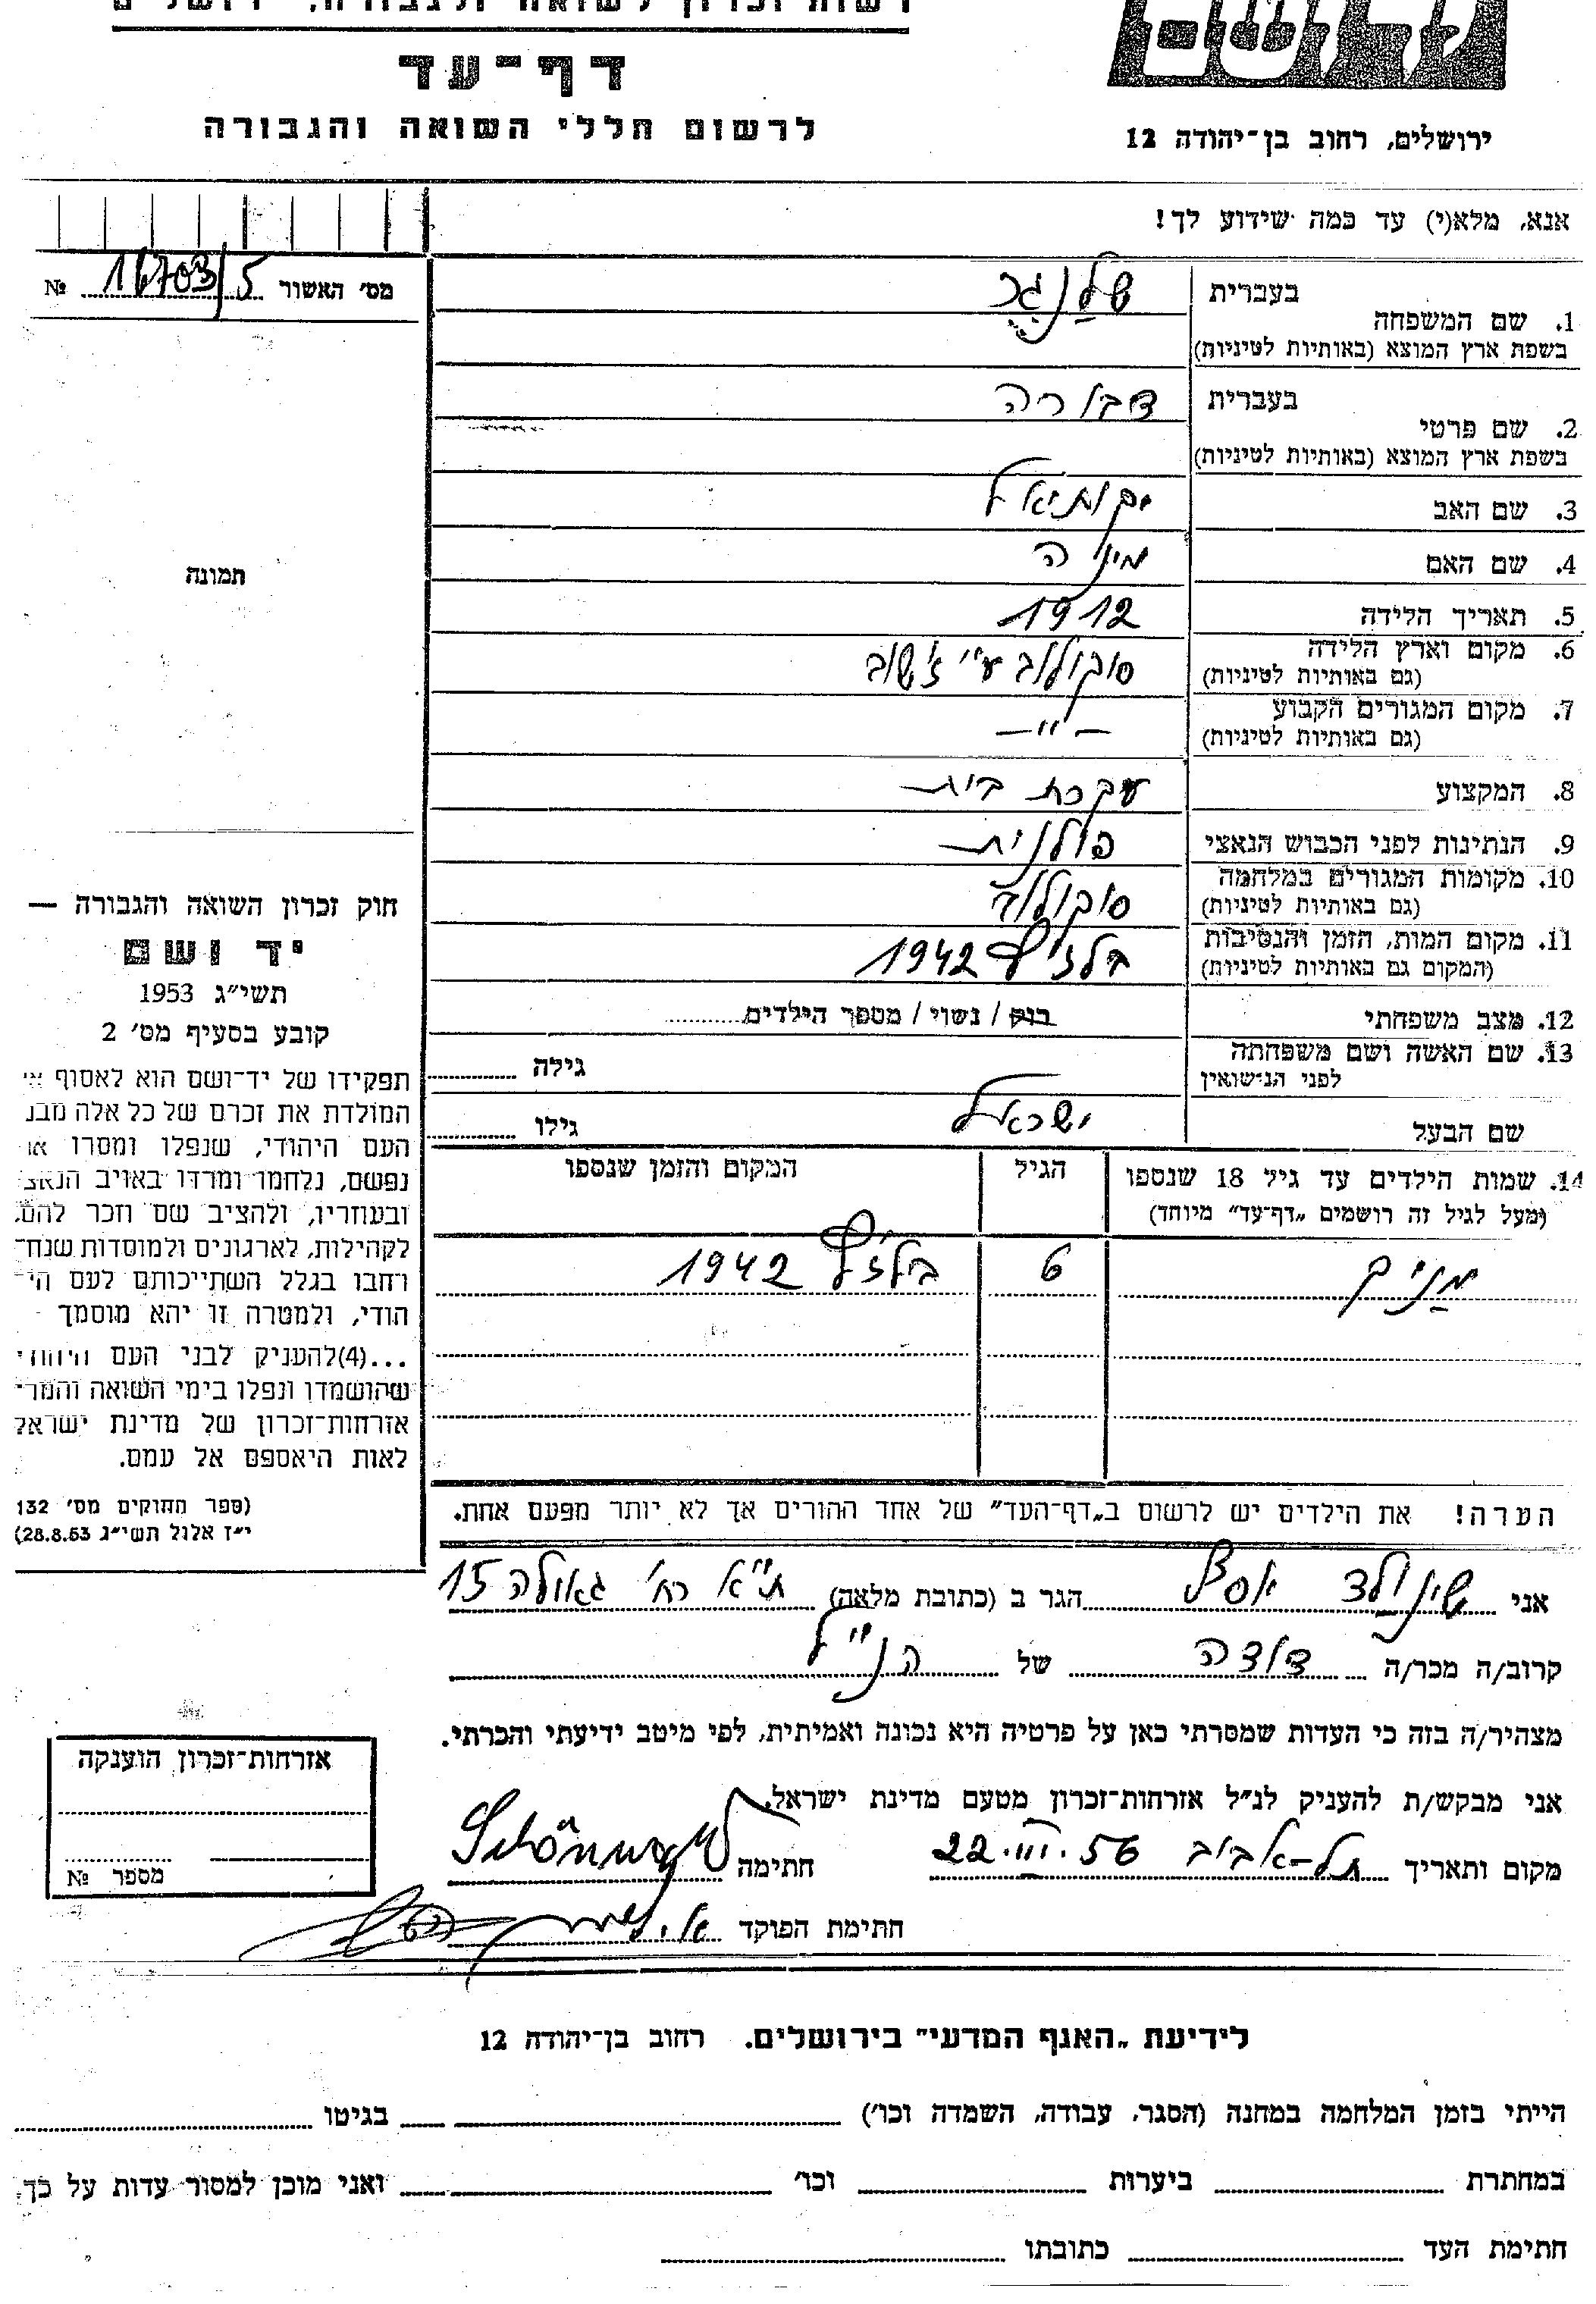 רשות זכרון לשואה ולגבורה, ירושלים
דף-עד
לרשום חללי השואה והגבורה
ירושלים, רחוב בן-יהודה 12
אנא, מלא(י) עד כמה שידוע לך!
מס' האשור № 16703/5
1. שם המשפחה בעברית שלנגר
בשפת ארץ המוצא (באותיות לטיניות)
2. שם פרטי בעברית דבורה
בשפת ארץ המוצא (באותיות לטיניות)
3. שם האב יקותיאל
4. שם האם מינה
5. תאריך הלידה 1912
6. מקום וארץ הלידה סוקולוב ע"י ז'שוב
(גם באותיות לטיניות)
7. מקום המגורים הקבוע — " —
(גם באותיות לטיניות)
8. המקצוע עקרת בית
9. הנתינות לפני הכבוש הנאצי פולנית
10. מקומות המגורים במלחמה סוקולוב
(גם באותיות לטיניות)
11. מקום המות, הזמן והנסיבות בלז'ץ 1942
(המקום גם באותיות לטיניות)
12. מצב משפחתי רווק / נשוי / מספר הילדים
13. שם האשה ושם משפחתה גילה
לפני הנישואין
שם הבעל ישראל גילו
14. שמות הילדים עד גיל 18 שנספו הגיל המקום והזמן שנספו
(מעל לגיל זה רושמים „דף-עד" מיוחד)
6 בלז'ץ 1942
תמונה
חוק זכרון השואה והגבורה —
יד ושם
תשי"ג 1953
קובע בסעיף מס' 2
תפקידו של יד-ושם הוא לאסוף אל
המולדת את זכרם של כל אלה מבני
העם היהודי, שנפלו ומסרו את
נפשם, נלחמו ומרדו באויב הנאצי
ובעוזריו, ולהציב שם וזכר להם,
לקהילות, לארגונים ולמוסדות שנח-
רבו בגלל השתייכותם לעם הי-
הודי, ולמטרה זו יהא מוסמך -
...(4)להעניק לבני העם היהודי
שהושמדו ונפלו בימי השואה והמרי
אזרחות-זכרון של מדינת ישראל
לאות היאספם אל עמם.
(ספר החוקים מס' 132
י"ז אלול תשי"ג 28.8.53)
הערה! את הילדים יש לרשום ב„דף-העד" של אחד ההורים אך לא יותר מפעם אחת.
אני שינולד הגר ב (כתובת מלאה) ת"א רח' גאולה 15
קרוב/ה מכר/ה דודה של הנ"ל
מצהיר/ה בזה כי העדות שמסרתי כאן על פרטיה היא נכונה ואמיתית, לפי מיטב ידיעתי והכרתי.
אני מבקש/ת להעניק לנ"ל אזרחות-זכרון מטעם מדינת ישראל.
מקום ותאריך תל-אביב 22.III.56 חתימה
חתימת הפוקד
אזרחות-זכרון הוענקה
מספר №
לידיעת „האגף המדעי" בירושלים. רחוב בן-יהודה 12
הייתי בזמן המלחמה במחנה (הסגר, עבודה, השמדה וכו') בגיטו
במחתרת ביערות וכו' ואני מוכן למסור עדות על כך.
חתימת העד כתובתו